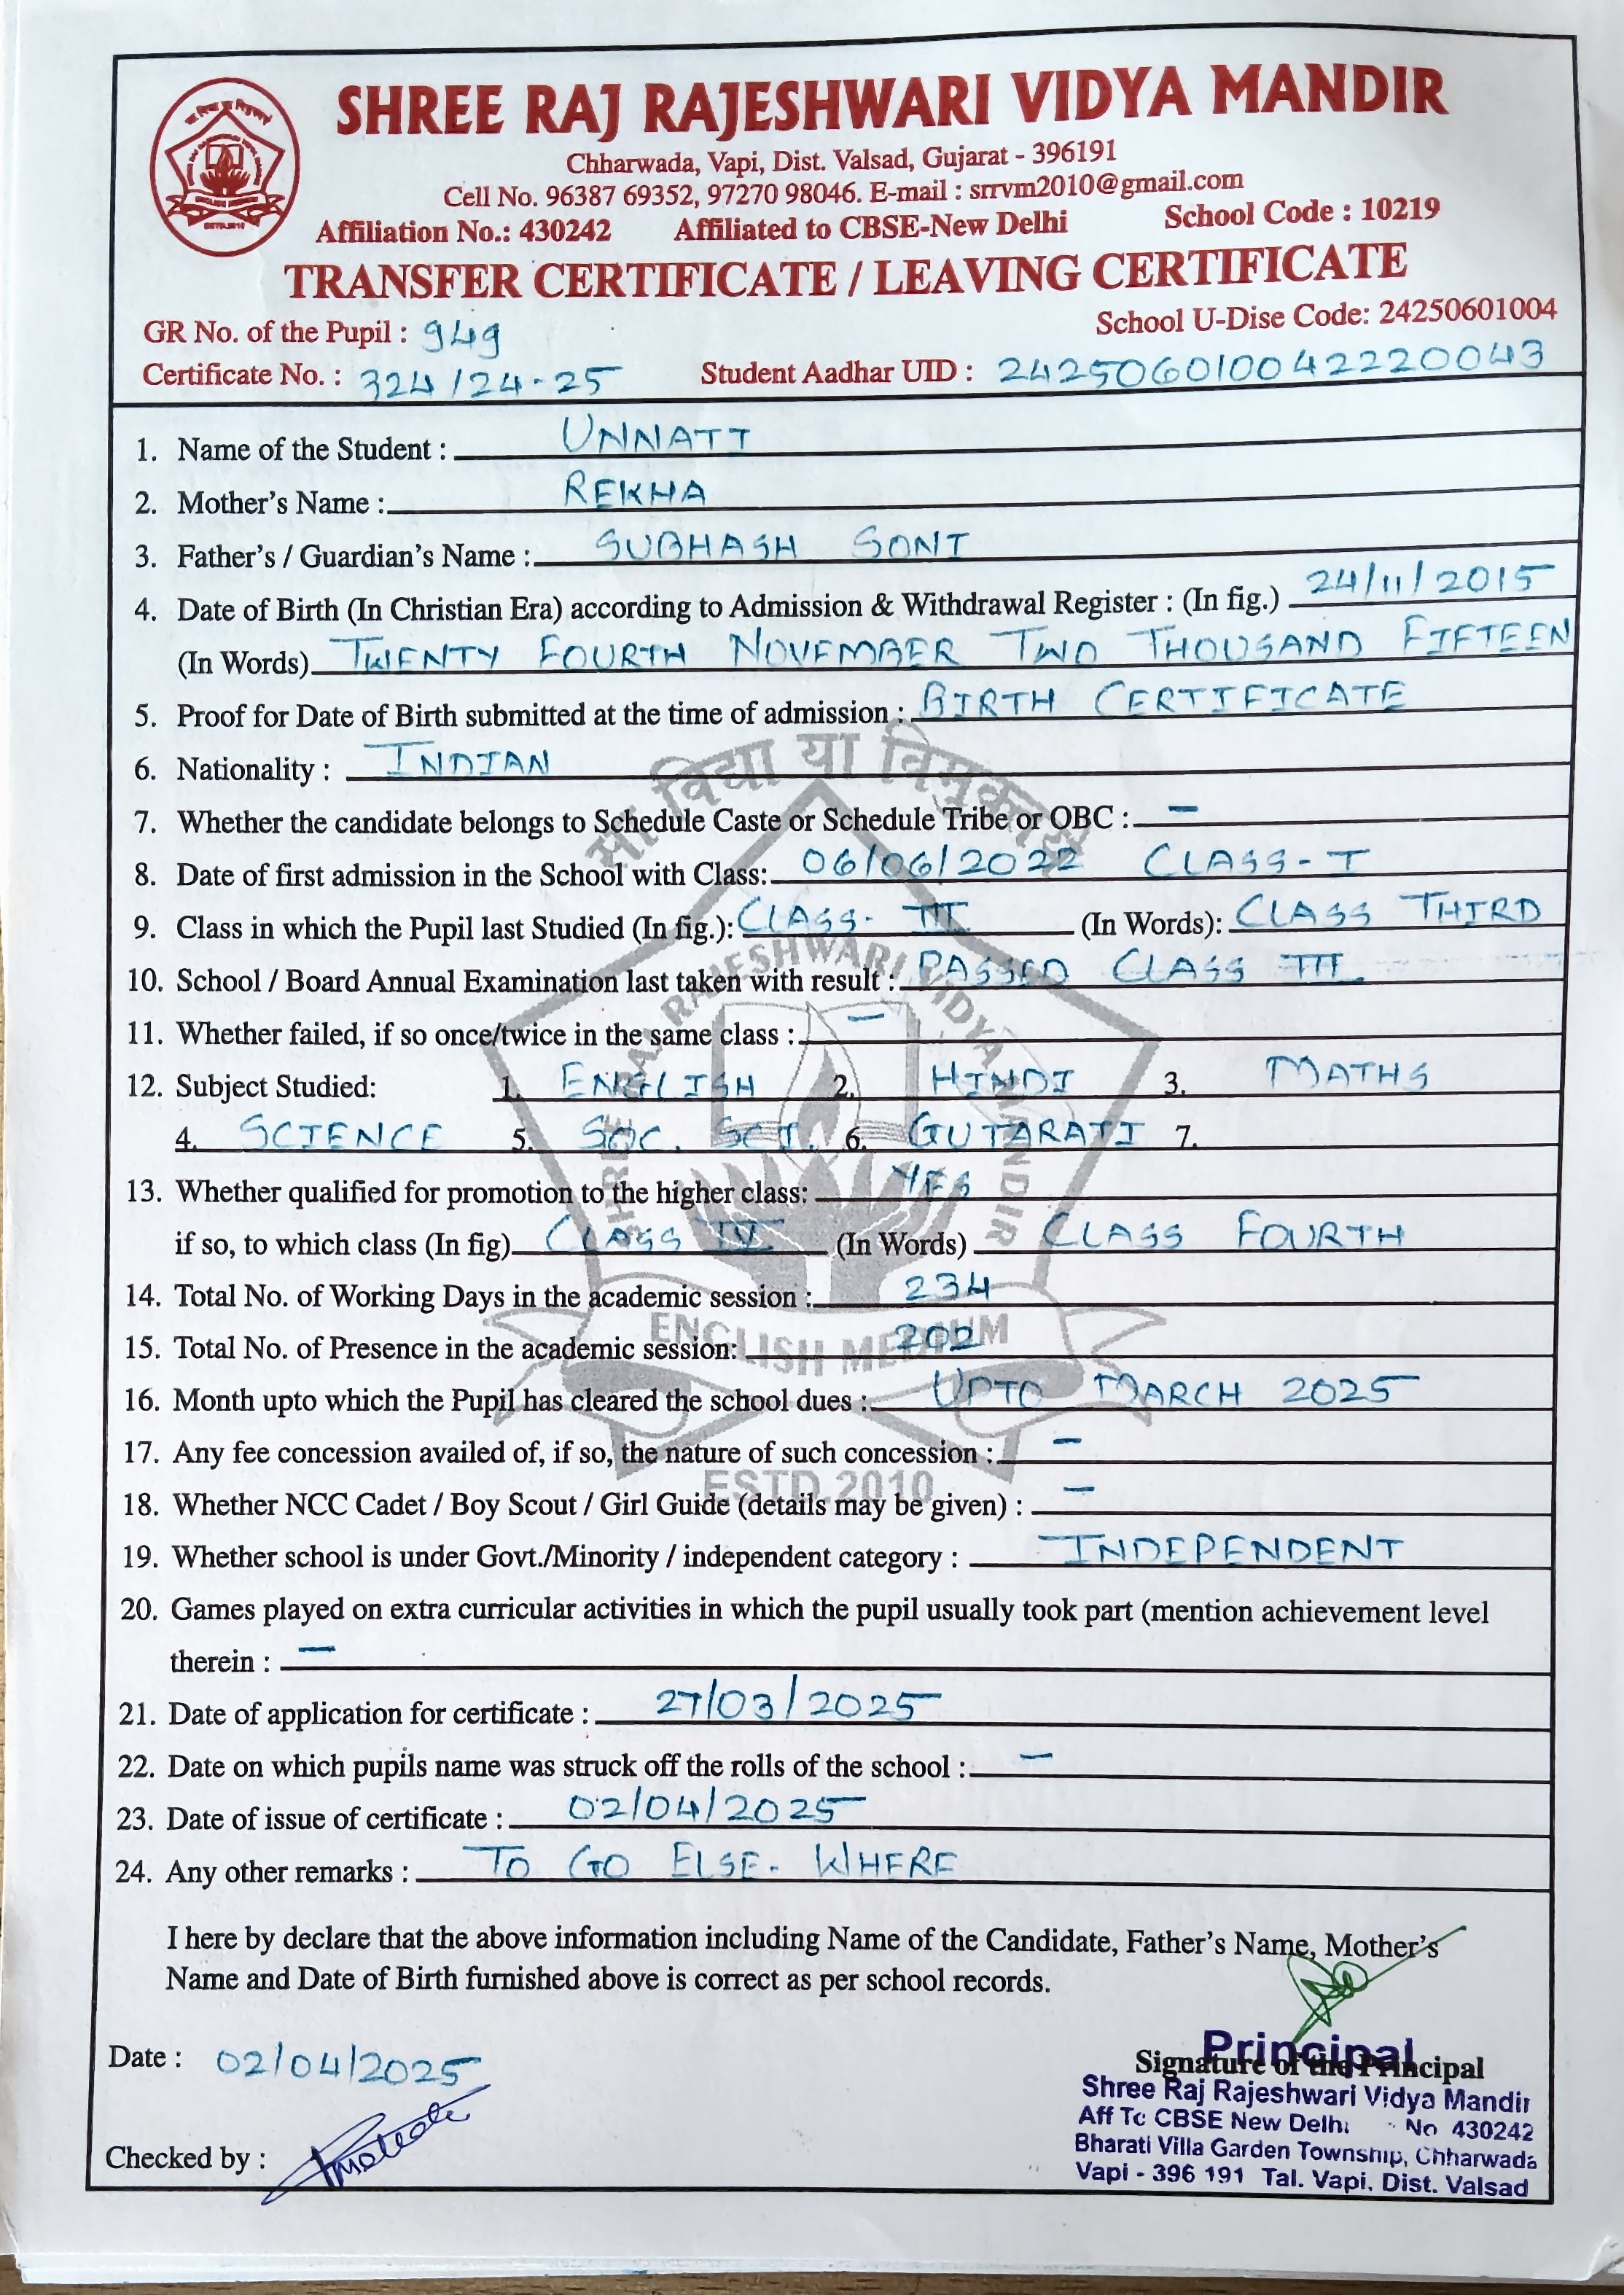 SHREE RAJ RAJESHWARI VIDYA MANDIR
Chharwada, Vapi, Dist. Valsad, Gujarat - 396191
Cell No. 96387 69352, 97270 98046. E-mail : srrvm2010@gmail.com
Affiliation No.: 430242 Affiliated to CBSE-New Delhi School Code : 10219
TRANSFER CERTIFICATE / LEAVING CERTIFICATE
School U-Dise Code: 24250601004
GR No. of the Pupil : 949
Certificate No. : 324/24-25 Student Aadhar UID : 242506010042220043
1. Name of the Student : UNNATI
2. Mother's Name : REKHA
3. Father's / Guardian's Name : SUBHASH SONI
4. Date of Birth (In Christian Era) according to Admission & Withdrawal Register : (In fig.) 24/11/2015
(In Words) TWENTY FOURTH NOVEMBER TWO THOUSAND FIFTEEN
5. Proof for Date of Birth submitted at the time of admission : BIRTH CERTIFICATE
6. Nationality : INDIAN
सा विद्या या विमुक्तये
7. Whether the candidate belongs to Schedule Caste or Schedule Tribe or OBC : -
8. Date of first admission in the School with Class: 06/06/2022 CLASS-I
9. Class in which the Pupil last Studied (In fig.): CLASS-III (In Words): CLASS THIRD
SHREE RAJ RAJESHWARI VIDYA MANDIR
10. School / Board Annual Examination last taken with result : PASSED CLASS III
11. Whether failed, if so once/twice in the same class : -
12. Subject Studied: 1. ENGLISH 2. HINDI 3. MATHS
4. SCIENCE 5. SOC. SCI. 6. GUJARATI 7.
13. Whether qualified for promotion to the higher class: YES
if so, to which class (In fig) CLASS IV (In Words) CLASS FOURTH
14. Total No. of Working Days in the academic session : 234
ENGLISH MEDIUM
15. Total No. of Presence in the academic session: 202
16. Month upto which the Pupil has cleared the school dues : UPTO MARCH 2025
17. Any fee concession availed of, if so, the nature of such concession : -
ESTD.2010
18. Whether NCC Cadet / Boy Scout / Girl Guide (details may be given) : -
19. Whether school is under Govt./Minority / independent category : INDEPENDENT
20. Games played on extra curricular activities in which the pupil usually took part (mention achievement level
therein : -
21. Date of application for certificate : 27/03/2025
22. Date on which pupils name was struck off the rolls of the school : -
23. Date of issue of certificate : 02/04/2025
24. Any other remarks : TO GO ELSE-WHERE
I here by declare that the above information including Name of the Candidate, Father's Name, Mother's
Name and Date of Birth furnished above is correct as per school records.
Date : 02/04/2025
Principal
Signature of the Principal
Shree Raj Rajeshwari Vidya Mandir
Aff To CBSE New Delhi No 430242
Bharati Villa Garden Township, Chharwada
Vapi - 396 191 Tal. Vapi, Dist. Valsad
Checked by :